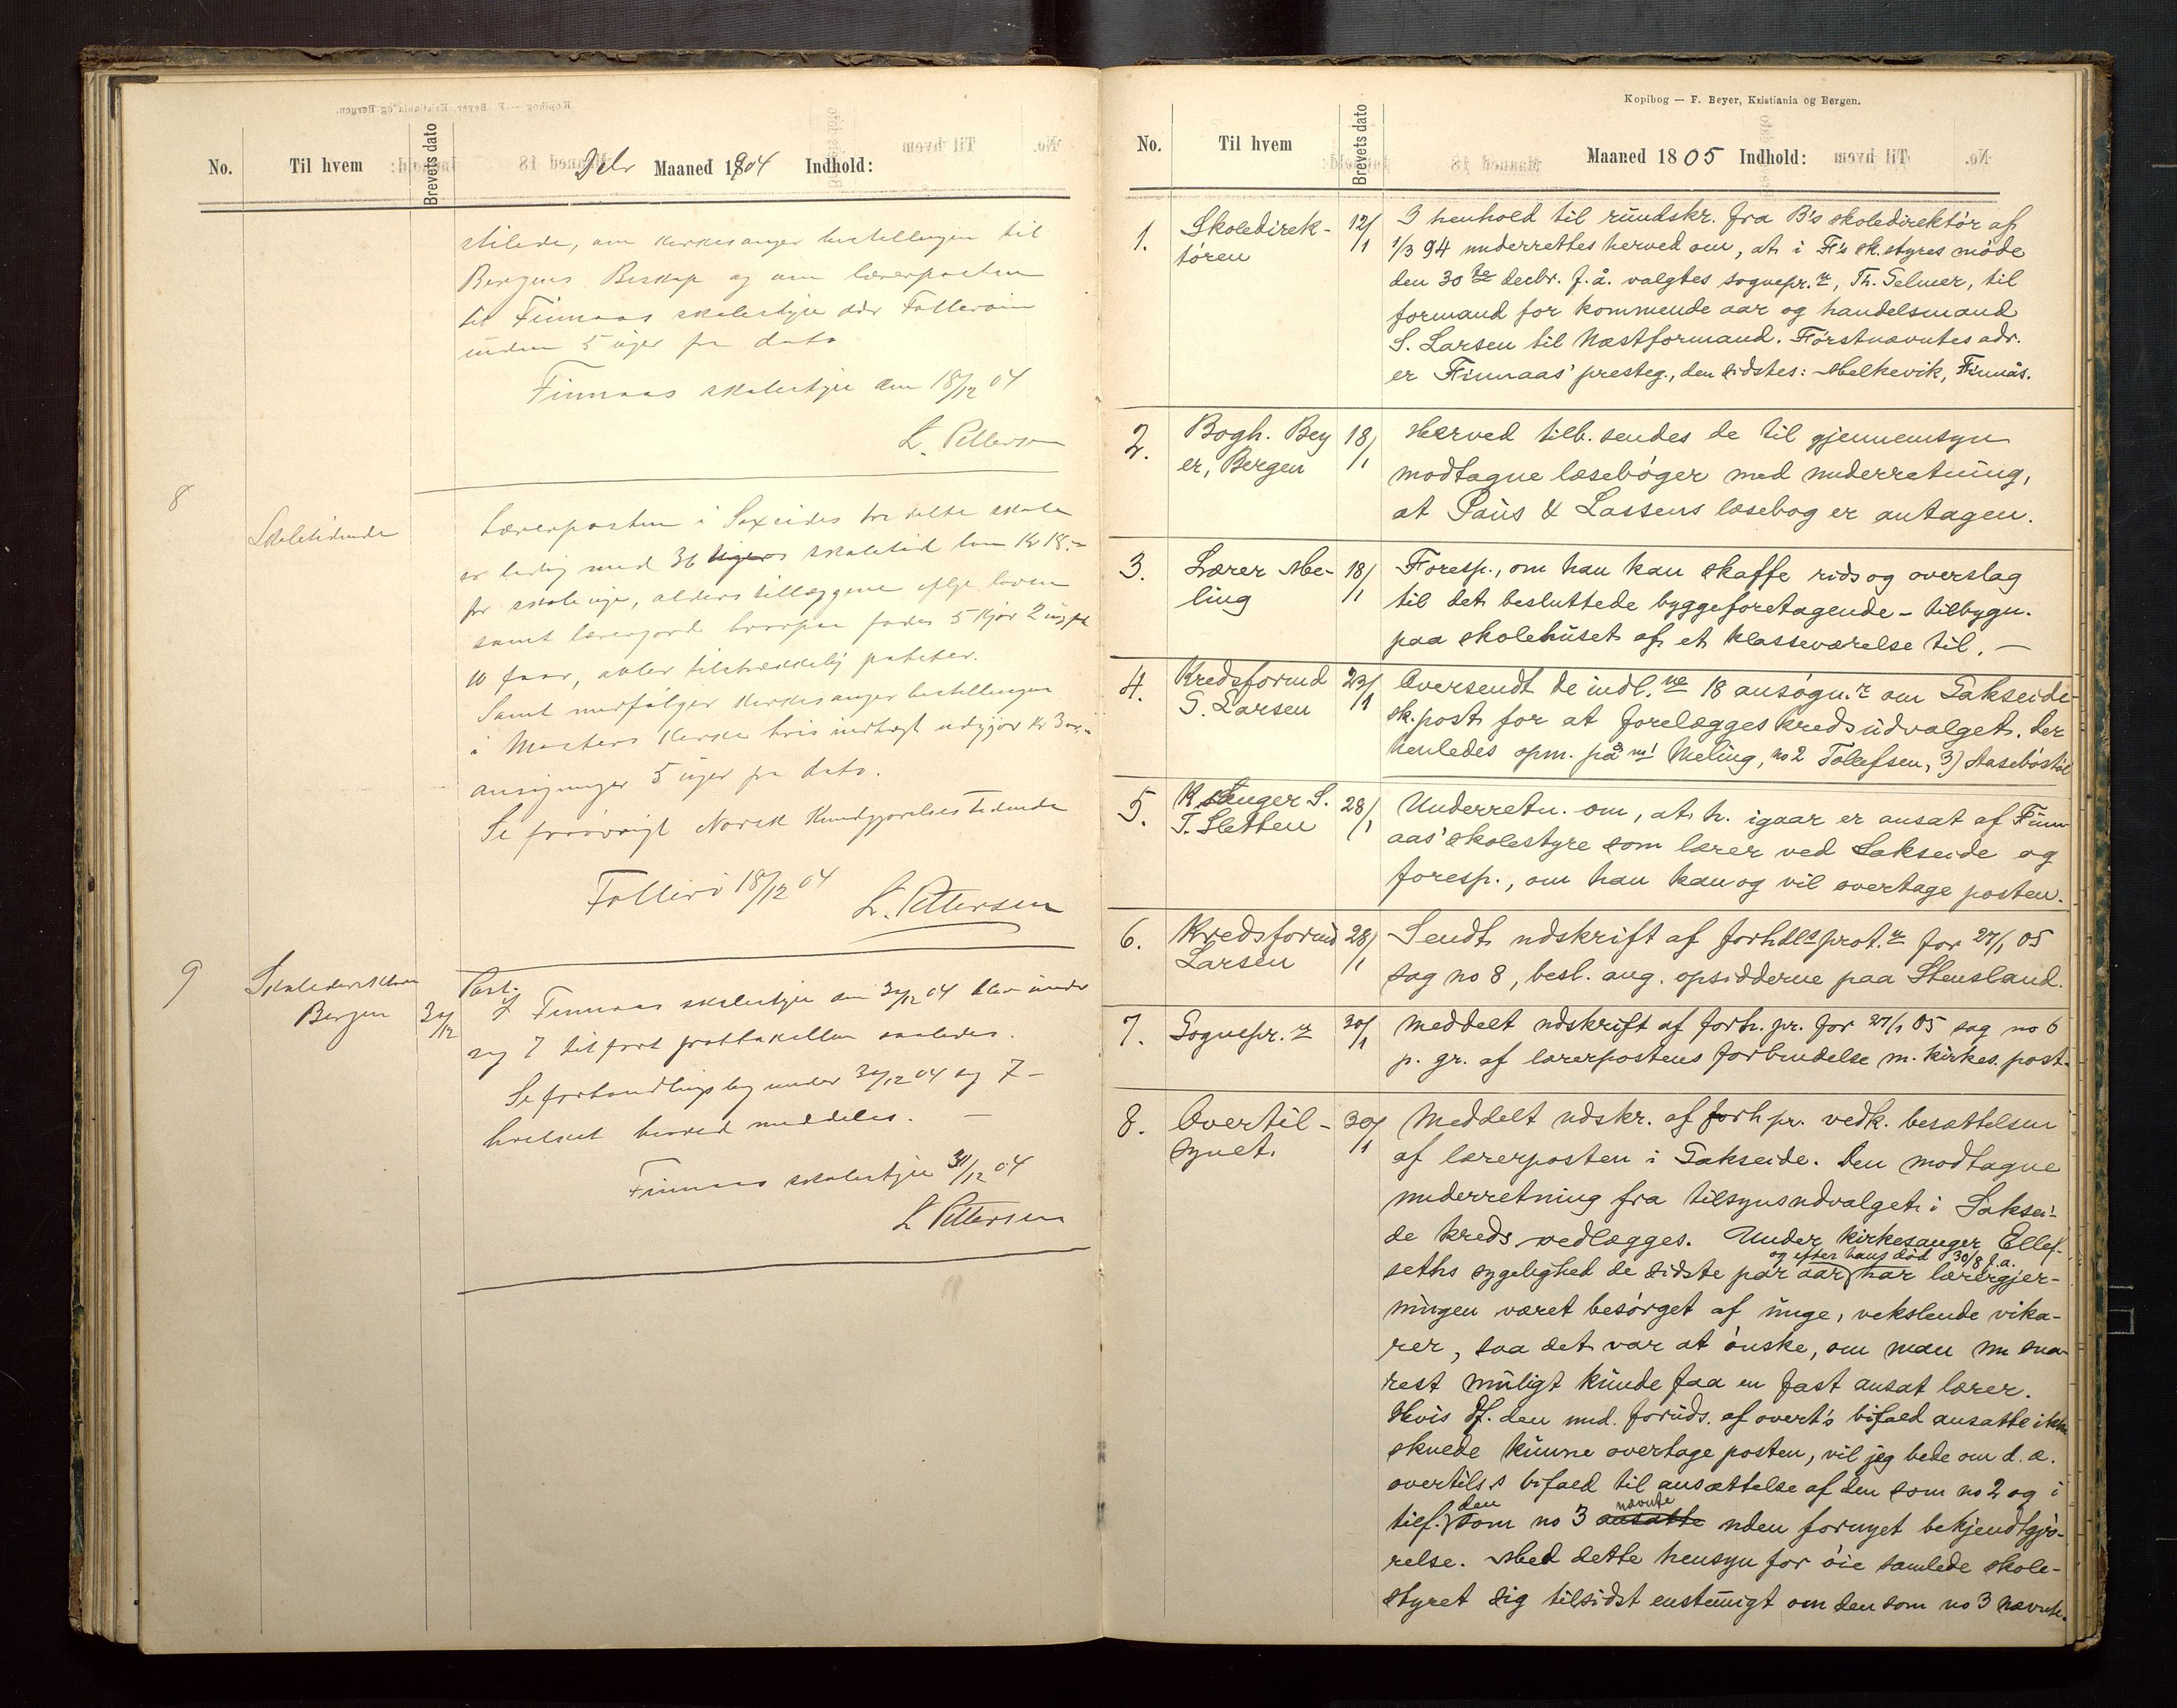 No. Til hvem Brevets dato Debr Maaned 1904 Indhold:
stilede, om kirkesanger bestillingen til
Bergens Biskop og om lærerposten
til Finnaas skolestyre adr Folleröen
inden 5 uger fra dato
Finnaas skolestyre den 18/12 04
L. Pettersen
8 Skoletidende
Lærerposten i Saxeides tredelte skole
er ledig med 36 ugers skoletid løn Kr 18.-
pr skoleuge, alders tillæggene efter loven
samt lærerjord hvorpaa fødes 5 Kjør 2
10 faar, avler tilstrækkelig poteter.
Samt medfølger Kirkesanger bestillingen
i Mosters Kirke hvis indtægt udgjør kr
ansøgninger 5 uger fra dato.
Se forøvrigt Norsk Kundgjørelses Tidende
Follerö 18/12 04
L. Pettersen
9 Skoledirektøren Bergen 30/12
I Finnaas skolestyre den 30/12 04 blev under
sag 7 tilført prottokollen saaledes.
Se forhandlingsbog under 30/12 04 sag 7 –
hvilket herved meddeles. —
Finnaas skolestyre 31/12 04
L Pettersen
Kopibog — F. Beyer, Kristiania og Bergen.
No. Til hvem Brevets dato Maaned 1805 Indhold:
1. Skoledirek-
tøren 12/1
I henhold til rundskr. fra B's skoledirektør af
1/3 94 underrettes herved om, at i F's sk.styres møde
den 30te decbr. f.å. valgtes sognepr.n, Th. Selmer, til
formand for kommende aar og handelsmand
S. Larsen til Næstformand. Förstnævntes adr.
er Finnaas' presteg., den sidstes: Melkevik, Finnås.
2. Bogh. Bey
er, Bergen 18/1
Herved tilb. sendes de til gjennemsyn
modtagne læsebøger med underretning,
at Paus & Lassens læsebog er antagen.
3. Lærer Me-
ling 18/1
Foresp., om han kan skaffe rids og overslag
til det besluttede byggeforetagende – tilbygn.
paa skolehuset af et klasseværelse til. —
4. Kredsformd
S. Larsen 23/1
Oversendt de indl.ne 18 ansøgn.r om Sakseide
sk.post for at forelægges kredsudvalget. Der
henledes opm. på no 1 Meling, no 2 Tollefsen, 3) Aasebøstöl
5. K sanger S.
T. Sletten 28/1
Underretn. om, at h. igaar er ansat af Finn-
aas' skolestyre som lærer ved Sakseide og
foresp., om han kan og vil overtage posten.
6. Kredsformd
Larsen 28/1
Sendt udskrift af forhdlsprot.n for 27/1 05
sag no 8, besl. ang. opsidderne paa Stensland.
7. Sognepr.n 30/1
Meddelt udskrift af forh. pr. for 27/1 05 sag no 6
p. gr. af lærerpostens forbindelse m. kirkes. post.
8. Overtil-
synet. 30/1
Meddelt udskr. af forh pr. vedk. besættelsen
af lærerposten i Sakseide. Den modtagne
underretning fra tilsynsudvalget i Saksei-
de kreds vedlægges. Under kirkesanger Ellef-
og efter hans død 30/8 f.a.
seths sygelighed de sidste par aar har lærergjer-
ningen været besørget af unge, vekslende vika-
rer, saa det var at ønske, om man nu sna-
rest muligt kunde faa en fast ansat lærer.
Hvis df. den und. foruds. af overt's bifald ansatte ikke
skulde kunne overtage posten, vil jeg bede om d. æ.
overtils.s bifald til ansættelse af den som no 2 og i
tilf. den som no 3 ansatte nævnte uden fornyet bekjendtgjø-
relse. Med dette hensyn for øie samlede skole-
styret sig tilsidst enstemmigt om den som no 3 nævnte.